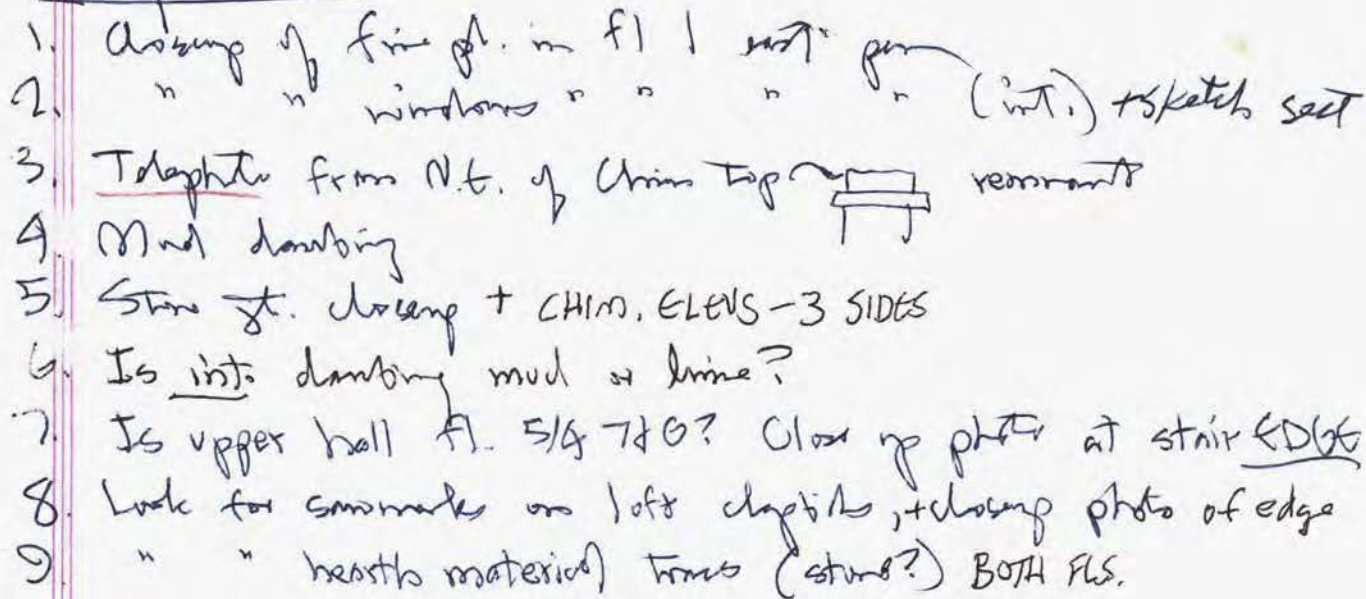 1. Closeup of fire pl. in fl 1 east pen
2. " " windows " " " " (int.) + sketch sect
3. Telephoto from N.E. of Chim top remnants
4. Mud daubing
5. Stone jt. closeup + CHIM. ELEVS - 3 SIDES
6. Is int. daubing mud or lime?
7. Is upper hall fl. 5/4 T&G? Close up photo at stair EDGE
8. Look for sawmarks on loft clapbds, + closeup photo of edge
9. " " hearth material (stone?) BOTH FLS.